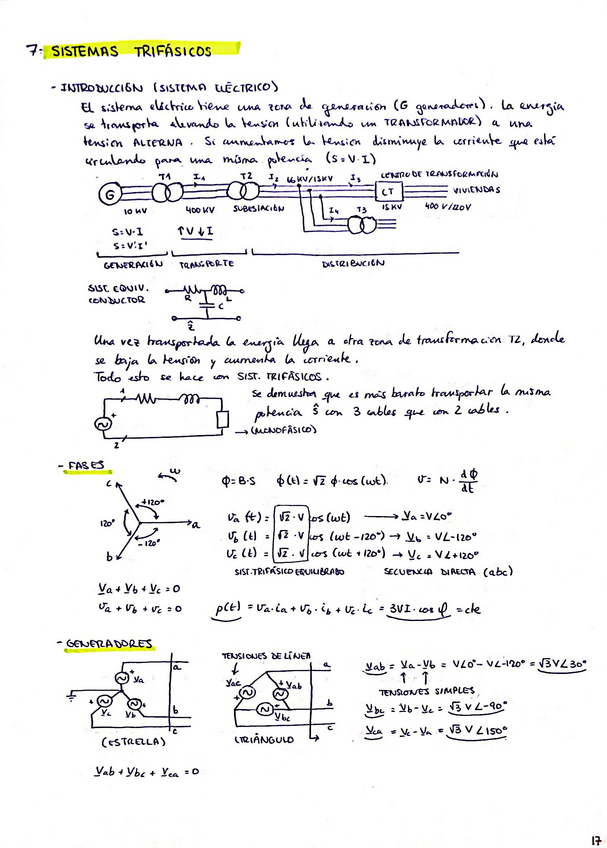 7- SISTEMAS TRIFÁSICOS
- INTRODUCCIÓN (SISTEMA ELÉCTRICO)
El sistema eléctrico tiene una zona de generación (G generadores). La energía
se transporta elevando la tensión (utilizando un TRANSFORMADOR) a una
tensión ALTERNA. Si aumentamos la tensión disminuye la corriente que está
circulando para una misma potencia (S=V·I)
T1 I₁ T2 I₂ 66KV/15KV I₃ CENTRO DE TRANSFORMACIÓN
G CT VIVIENDAS
I₄ T3
10 KV 400 KV SUBESTACIÓN 15 KV 400 V/220V
S=V·I ↑V↓I
S=V'·I'
GENERACIÓN TRANSPORTE DISTRIBUCIÓN
SIST. EQUIV.
CONDUCTOR R L
C
Una vez transportada la energía llega a otra zona de transformación T2, donde
se baja la tensión y aumenta la corriente.
Todo esto se hace con SIST. TRIFÁSICOS.
1 Se demuestra que es más barato transportar la misma
+ potencia Ŝ con 3 cables que con 2 cables.
2 → (MONOFÁSICO)
- FASES
ω
c φ=B·S φ(t)=√2 φ·cos(ωt) v = N· dφ/dt
+120°
120° a
-120°
b
va(t) = √2·V cos(ωt) → Va=V∠0°
vb(t) = √2·V cos(ωt-120°) → Vb = V∠-120°
vc(t) = √2·V cos(ωt+120°) → Vc = V∠+120°
SIST. TRIFÁSICO EQUILIBRADO SECUENCIA DIRECTA (abc)
Va+Vb+Vc=0
va+vb+vc=0 p(t) = va·ia+vb·ib+vc·ic = 3VI·cos φ = cte
- GENERADORES
TENSIONES DE LÍNEA
a Va b Vb Vc c
(ESTRELLA)
a Vac Vab b Vbc c
(TRIÁNGULO
Vab = Va-Vb = V∠0°- V∠-120° = √3V∠30°
TENSIONES SIMPLES
Vbc = Vb-Vc = √3 V∠-90°
Vca = Vc-Va = √3 V∠150°
Vab+Vbc+Vca=0
17